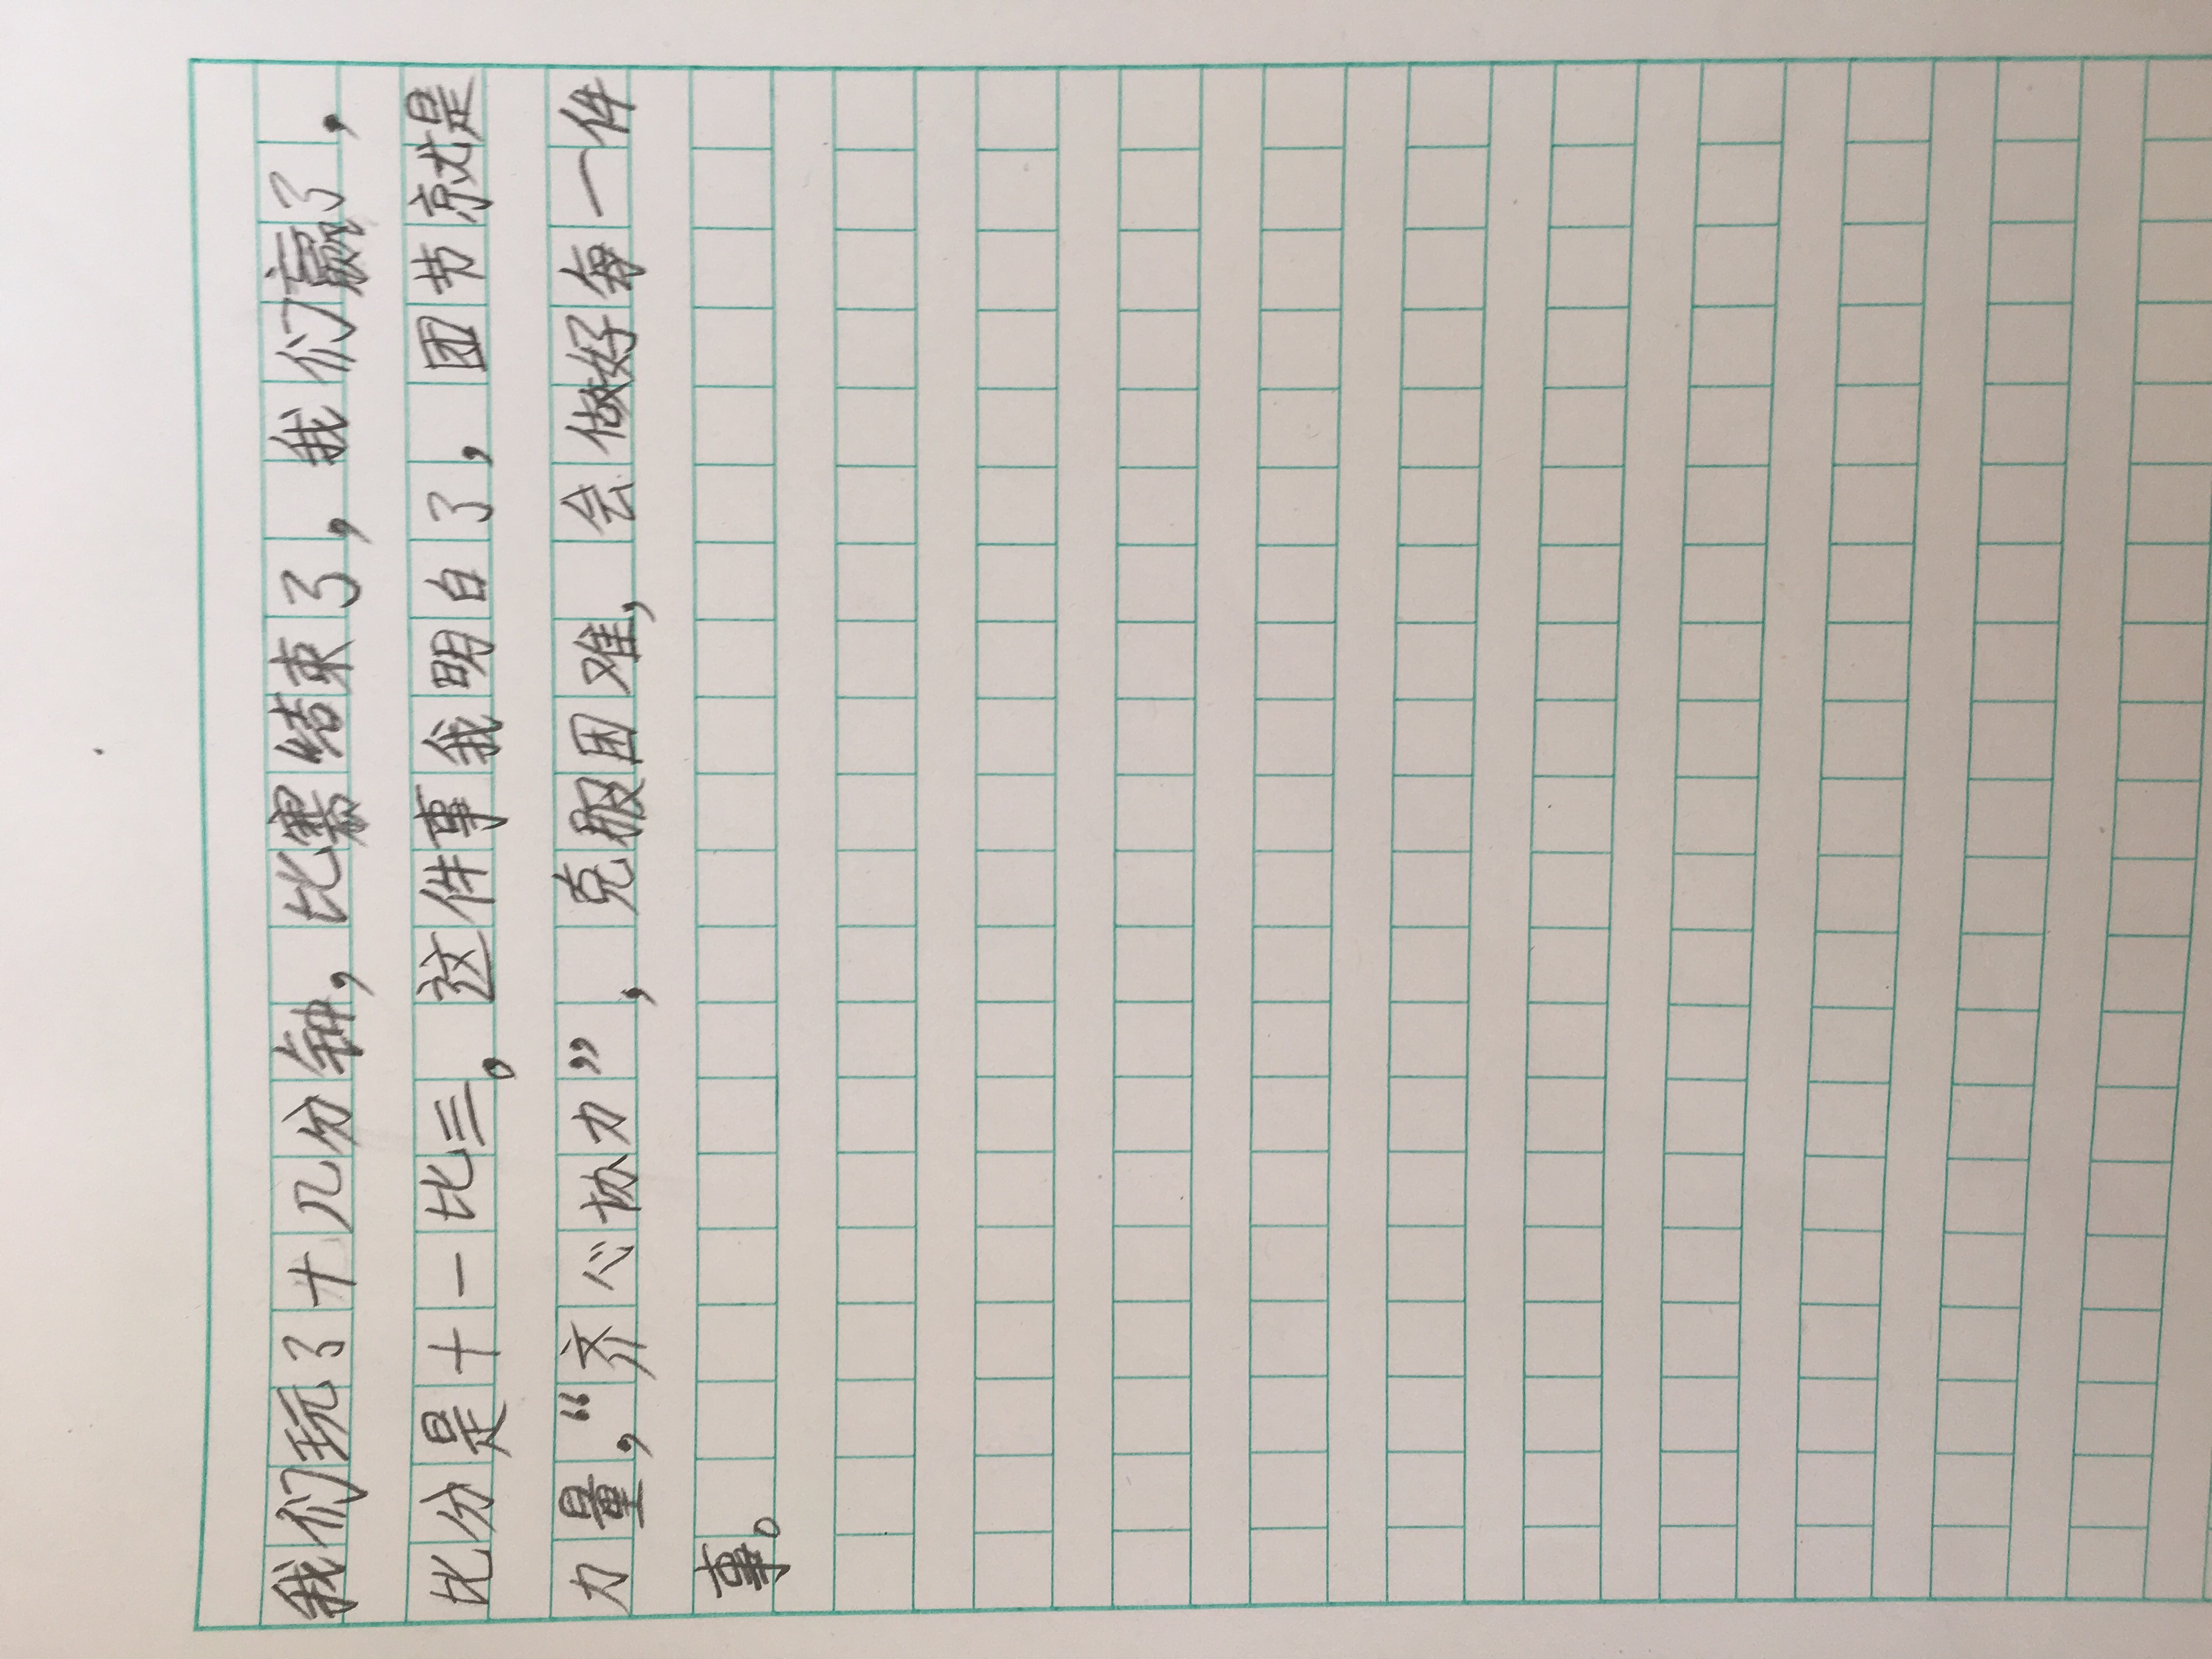 我们玩了十几分钟，比赛结束了，我们赢了，
比分是十一比三。这件事我明白了，团节就是
力量，“齐心协力”，克服困难，会做好每一件
事。